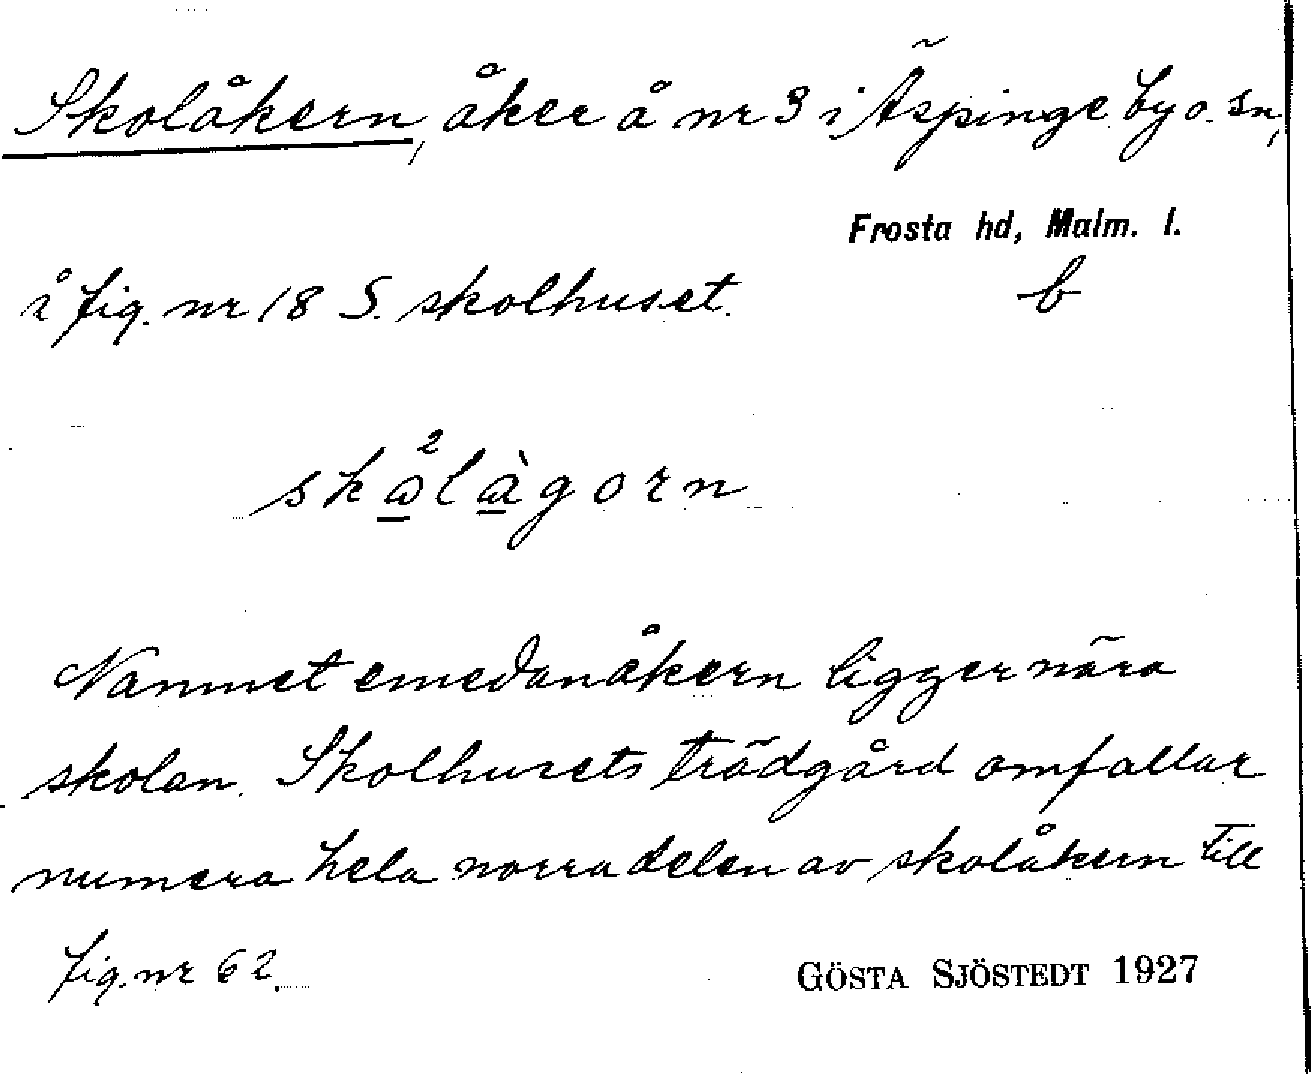 Skolåkern, åker å nr 3 i Äspinge by o. sn,
Frosta hd, Malm. l.
å fig. nr 18 S. skolhuset. b
Namnet emedan åkern ligger nära
skolan. Skolhusets trädgård omfattar
numera hela norra delen av skolåkern till
fig. nr 62.
GÖSTA SJÖSTEDT 1927